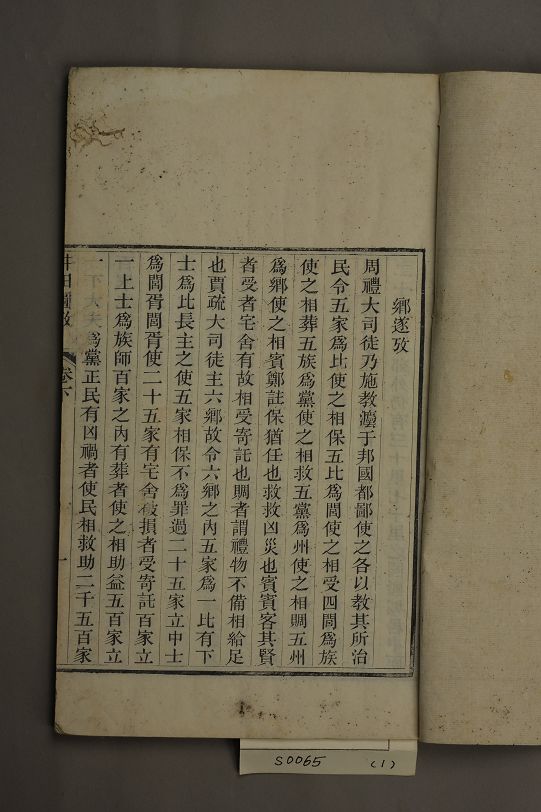 鄉遂攷
周禮大司徒乃施教灋于邦國都鄙使之各以教其所治
民令五家爲比使之相保五比爲閭使之相受四閭爲族
使之相葬五族爲黨使之相救五黨爲州使之相賙五州
爲鄉使之相賓鄭註保猶任也救救凶災也賓賓客其賢
者受者宅舍有故相受寄託也賙者謂禮物不備相給足
也賈疏大司徒主六鄉故令六鄉之內五家爲一比有下
士爲比長主之使五家相保不爲罪過二十五家立中士
爲閭胥閭胥使二十五家有宅舍破損者受寄託百家立
一上士爲族師百家之內有葬者使之相助益五百家立
一下大夫爲黨正民有凶禍者使民相救助二千五百家
井田圖攷
卷下
一
S0065 (1)